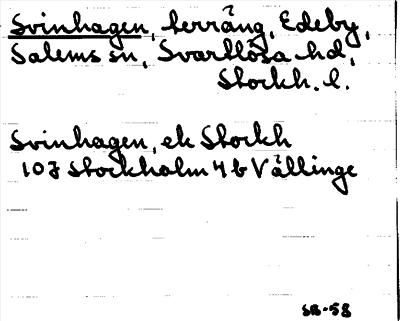 Svinhagen, terräng, Edeby,
Salems sn, Svartlösa hd,
Stockh. l.
Svinhagen, ek Stockh
10J Stockholm 4b Vällinge
SB-58